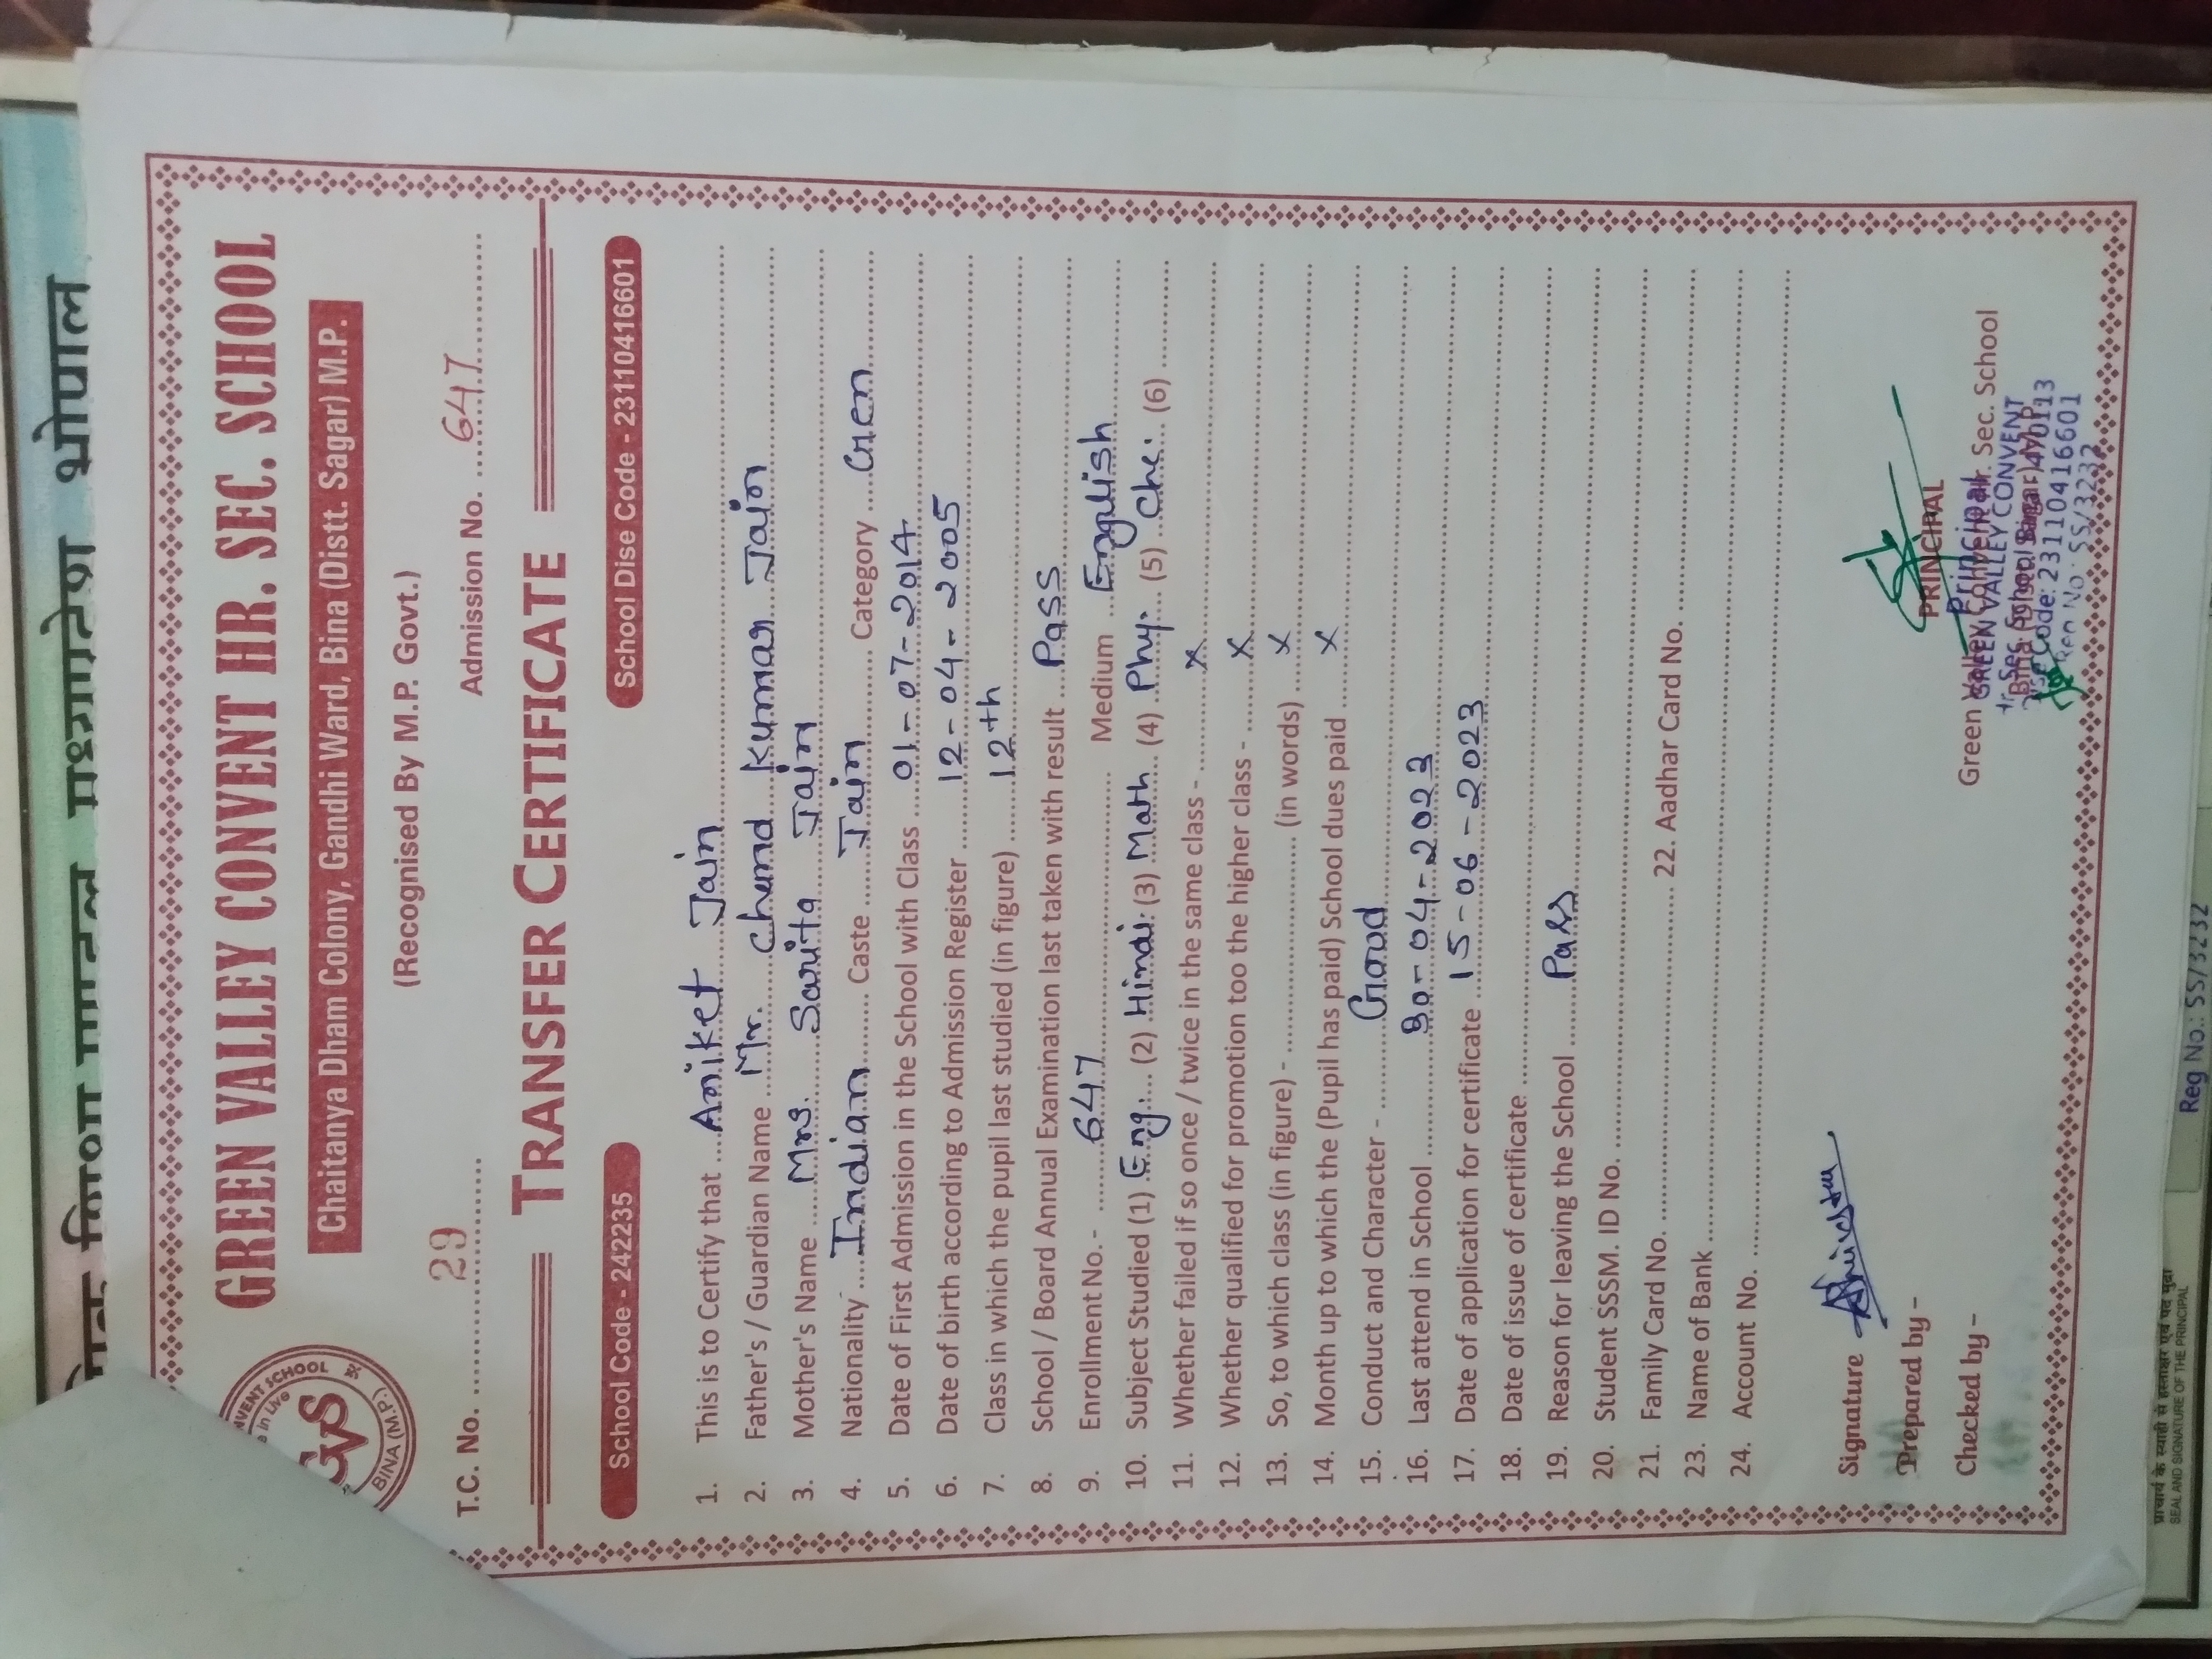 भोपाल
GREEN VALLEY CONVENT HR. SEC. SCHOOL
Chaitanya Dham Colony, Gandhi Ward, Bina (Distt. Sagar) M.P.
(Recognised By M.P. Govt.)
GVS
BINA (M.P.)
T.C. No. 29 Admission No. 647
TRANSFER CERTIFICATE
School Code - 242235 School Dise Code - 23110416601
1. This is to Certify that Aniket Jain
2. Father's / Guardian Name Mr. Chand Kumar Jain
3. Mother's Name Mrs. Sarita Jain
4. Nationality Indian Caste Jain Category Gen
5. Date of First Admission in the School with Class 01-07-2014
6. Date of birth according to Admission Register 12-04-2005
7. Class in which the pupil last studied (in figure) 12th
8. School / Board Annual Examination last taken with result Pass
9. Enrollment No. - 647 Medium English
10. Subject Studied (1) Eng. (2) Hindi (3) Math (4) Phy. (5) Che. (6)
11. Whether failed if so once / twice in the same class - x
12. Whether qualified for promotion too the higher class - x
13. So, to which class (in figure) - (in words) x
14. Month up to which the (Pupil has paid) School dues paid x
15. Conduct and Character - Good
16. Last attend in School 30-04-2023
17. Date of application for certificate 15-06-2023
18. Date of issue of certificate
19. Reason for leaving the School Pass
20. Student SSSM. ID No.
21. Family Card No. 22. Aadhar Card No.
23. Name of Bank
24. Account No.
Signature
Prepared by -
Checked by -
PRINCIPAL
Principal
Green Valley Convent Hr. Sec. School
GREEN VALLEY CONVENT
Code: 23110416601
Reg No: SS/3232
Reg No.: SS/3232
प्राचार्य के स्याही से हस्ताक्षर एवं पद मुद्रा
SEAL AND SIGNATURE OF THE PRINCIPAL